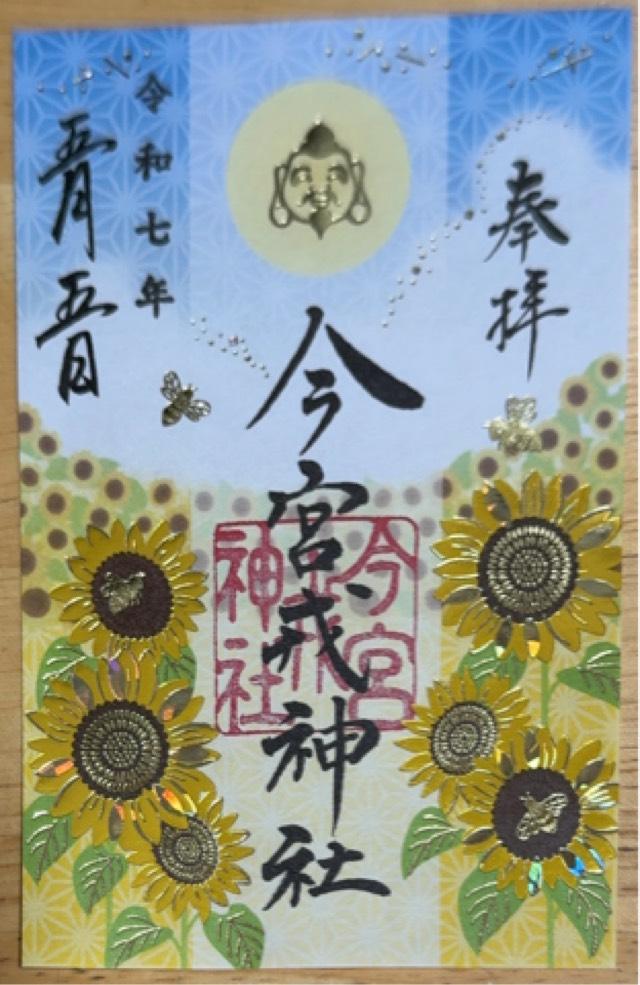 奉拝
今宮戎神社
今宮
戎
神社
令和七年
五月五日